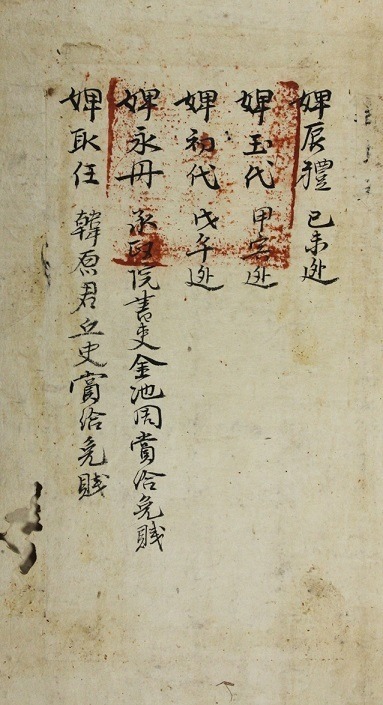 婢辰禮 己未迯
婢玉代 甲寅迯
婢初代 戊午迯
婢永丹 承政院書吏金池同賞給免賤
婢耿任 韓原君丘史賞給免賤